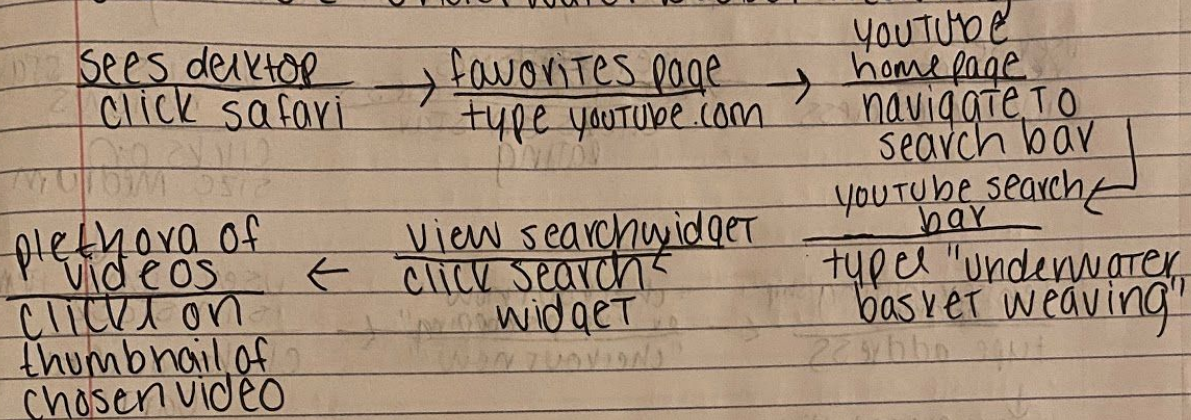 sees desktop
click safari
→ favorites page
type youTube.com
→ youTube
homepage
navigate to
search bar
youTube search
bar
types "underwater
basket weaving"
view searchwidget
click search
widget
← plethora of
videos
clicks on
thumbnail of
chosen video